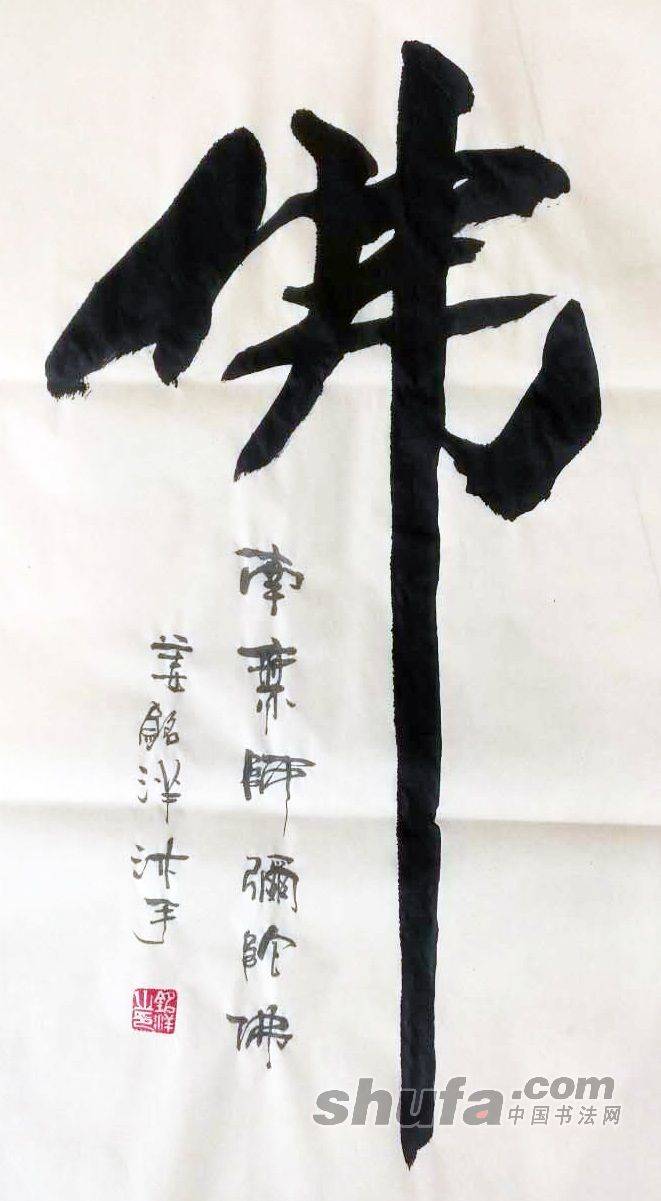 佛
南無阿彌陀佛
姜銘洋沐手
銘洋之印
shufa.com
中国书法网